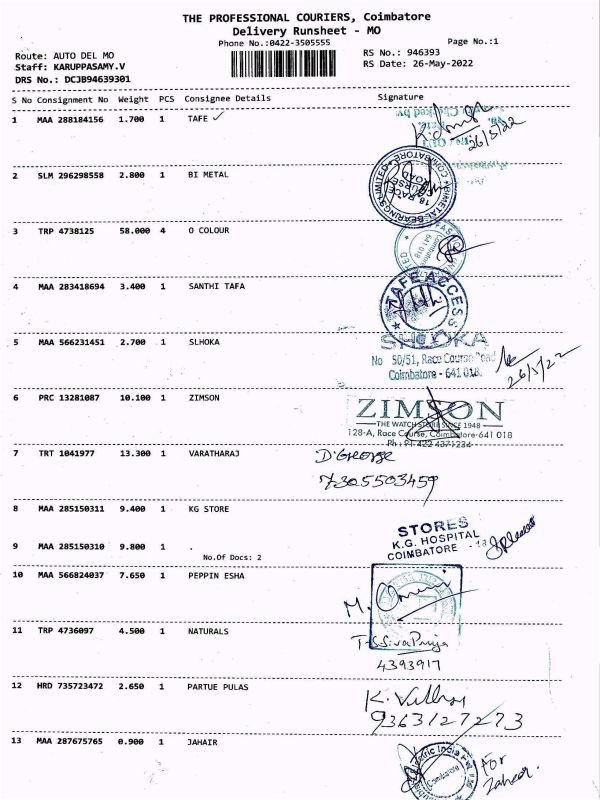 THE PROFESSIONAL COURIERS, Coimbatore
Delivery Runsheet - MO
Phone No.:0422-3505555
Page No.:1
Route: AUTO DEL MO
RS No.: 946393
Staff: KARUPPASAMY.V
RS Date: 26-May-2022
DRS No.: DCJB94639301
S No Consignment No Weight PCS Consignee Details Signature
1 MAA 288184156 1.700 1 TAFE ✓
26/5/22
2 SLM 296298558 2.800 1 BI METAL
BIMETAL BEARINGS LIMITED
18 RACE COURSE ROAD
COIMBATORE
3 TRP 4738125 58.000 4 O COLOUR
4 MAA 283418694 3.400 1 SANTHI TAFA
TAFE ACCESS
5 MAA 566231451 2.700 1 SLHOKA
SHLOKA
No 50/51, Race Course Road
Coimbatore - 641 018.
26/5/22
6 PRC 13281087 10.100 1 ZIMSON
ZIMSON
THE WATCH STORE SINCE 1948
128-A, Race Course, Coimbatore-641 018
Ph : 91-422 4371234
7 TRT 1041977 13.300 1 VARATHARAJ
D. George
7305503459
8 MAA 285150311 9.400 1 KG STORE
STORES
K.G. HOSPITAL
COIMBATORE - 18
9 MAA 285150310 9.800 1 .
No.Of Docs: 2
10 MAA 566824037 7.650 1 PEPPIN ESHA
11 TRP 4736097 4.500 1 NATURALS
T.S Siva Priya
4393917
12 HRD 735723472 2.650 1 PARTUE PULAS
9363127273
13 MAA 287675765 0.900 1 JAHAIR
For
Zaheer.